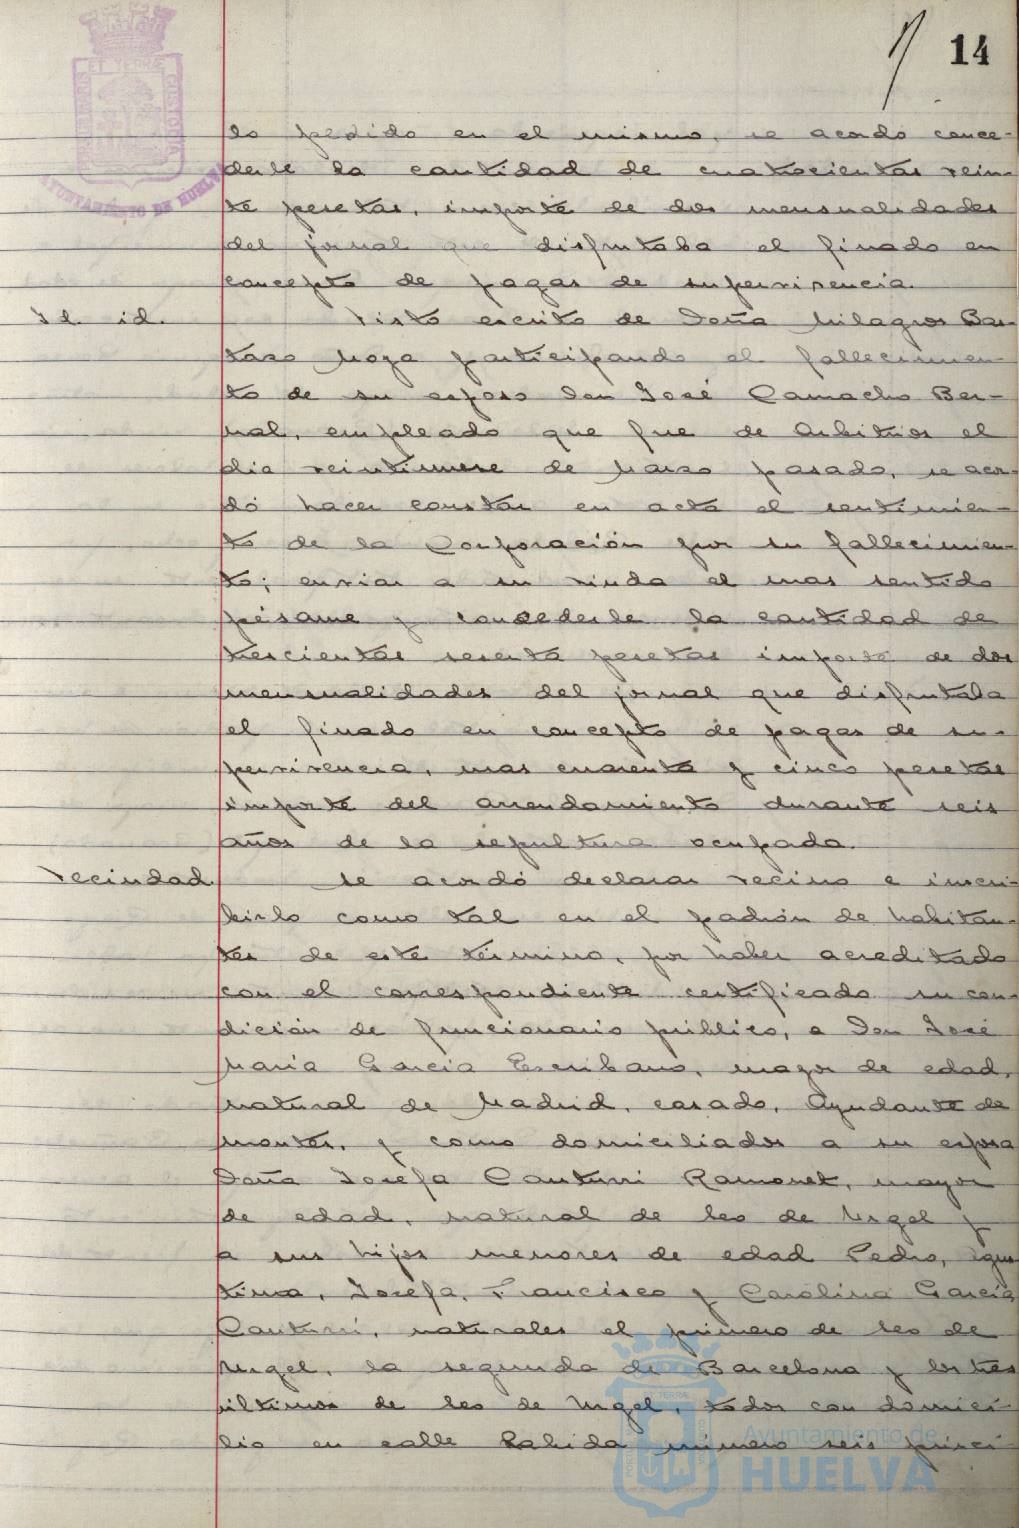 14
lo pedido en el mismo, se acordó conce-
derle la cantidad de cuatrocientas vein-
te pesetas, importe de dos mensualidades
del jornal que disfrutaba el finado en
concepto de pagas de supervivencia.
Id. id.
Visto escrito de Doña Milagros Bas-
taso Moya participando el fallecimien-
to de su esposo Don José Camacho Ber-
nal, empleado que fue de Arbitrios el
dia veintinueve de Marzo pasado, se acor-
dó hacer constar en acta el sentimien-
to de la Corporación por su fallecimien-
to; enviar a su viuda el mas sentido
pésame y concederle la cantidad de
trescientas sesenta pesetas importe de dos
mensualidades del jornal que disfrutaba
el finado en concepto de pagas de su-
pervivencia, mas cuarenta y cinco pesetas
importe del arrendamiento durante seis
años de la sepultura ocupada.
Vecindad
Se acordó declarar vecino e inscri-
birlo como tal en el padrón de habitan-
tes de este término, por haber acreditado
con el correspondiente certificado su con-
dición de funcionario público, a Don José
Maria Garcia Escribano, mayor de edad,
natural de Madrid, casado, Ayudante de
montes, y como domiciliados a su esposa
Doña Josefa Canturri Ramonet, mayor
de edad, natural de Seo de Urgel y
a sus hijos menores de edad Pedro, Agus
tina, Josefa, Francisco y Carolina García
Canturri, naturales el primero de Seo de
Urgel, la segunda de Barcelona y los tres
últimos de Seo de Urgel, todos con domici-
lio en calle Rabida número seis princi-
AYUNTAMIENTO DE HUELVA
Ayuntamiento de
HUELVA